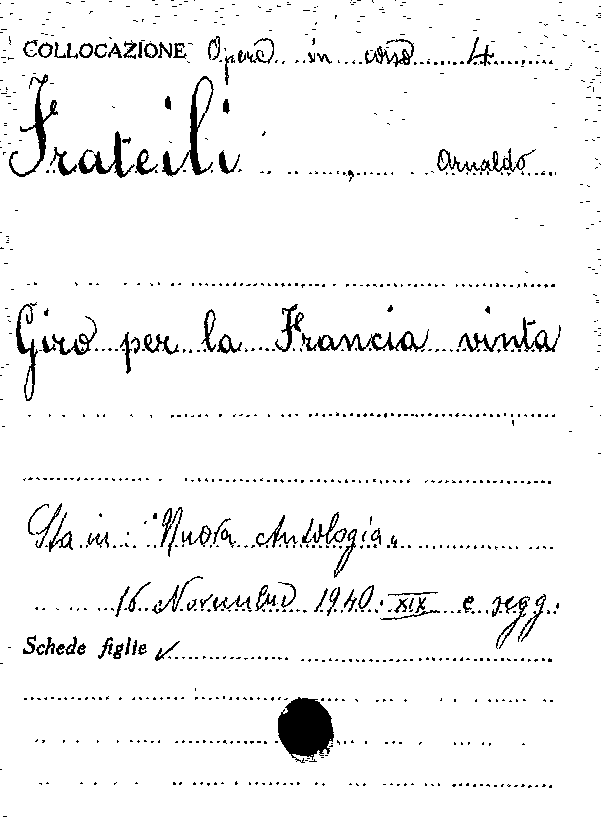 COLLOCAZIONE Opere in corso 4
Frateili, Arnaldo
Giro per la Francia vinta
Sta in: "Nuova Antologia"
16 Novembre 1940. XIX e segg.
Schede figlie ✓